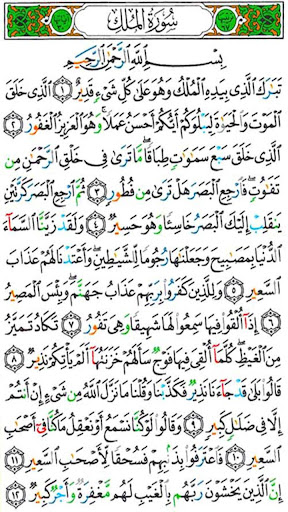 سُورَةُ المُلْكِ
بِسْمِ ٱللَّهِ ٱلرَّحْمَٰنِ ٱلرَّحِيمِ
تَبَٰرَكَ ٱلَّذِى بِيَدِهِ ٱلْمُلْكُ وَهُوَ عَلَىٰ كُلِّ شَىْءٍ قَدِيرٌ ١ ٱلَّذِى خَلَقَ
ٱلْمَوْتَ وَٱلْحَيَوٰةَ لِيَبْلُوَكُمْ أَيُّكُمْ أَحْسَنُ عَمَلًا ۚ وَهُوَ ٱلْعَزِيزُ ٱلْغَفُورُ ٢
ٱلَّذِى خَلَقَ سَبْعَ سَمَٰوَٰتٍ طِبَاقًا ۖ مَّا تَرَىٰ فِى خَلْقِ ٱلرَّحْمَٰنِ مِن
تَفَٰوُتٍ ۖ فَٱرْجِعِ ٱلْبَصَرَ هَلْ تَرَىٰ مِن فُطُورٍ ٣ ثُمَّ ٱرْجِعِ ٱلْبَصَرَ كَرَّتَيْنِ
يَنقَلِبْ إِلَيْكَ ٱلْبَصَرُ خَاسِئًا وَهُوَ حَسِيرٌ ٤ وَلَقَدْ زَيَّنَّا ٱلسَّمَآءَ
ٱلدُّنْيَا بِمَصَٰبِيحَ وَجَعَلْنَٰهَا رُجُومًا لِّلشَّيَٰطِينِ ۖ وَأَعْتَدْنَا لَهُمْ عَذَابَ
ٱلسَّعِيرِ ٥ وَلِلَّذِينَ كَفَرُوا۟ بِرَبِّهِمْ عَذَابُ جَهَنَّمَ ۖ وَبِئْسَ ٱلْمَصِيرُ
٦ إِذَآ أُلْقُوا۟ فِيهَا سَمِعُوا۟ لَهَا شَهِيقًا وَهِىَ تَفُورُ ٧ تَكَادُ تَمَيَّزُ
مِنَ ٱلْغَيْظِ ۖ كُلَّمَآ أُلْقِىَ فِيهَا فَوْجٌ سَأَلَهُمْ خَزَنَتُهَآ أَلَمْ يَأْتِكُمْ نَذِيرٌ ٨
قَالُوا۟ بَلَىٰ قَدْ جَآءَنَا نَذِيرٌ فَكَذَّبْنَا وَقُلْنَا مَا نَزَّلَ ٱللَّهُ مِن شَىْءٍ إِنْ أَنتُمْ
إِلَّا فِى ضَلَٰلٍ كَبِيرٍ ٩ وَقَالُوا۟ لَوْ كُنَّا نَسْمَعُ أَوْ نَعْقِلُ مَا كُنَّا فِىٓ أَصْحَٰبِ
ٱلسَّعِيرِ ١٠ فَٱعْتَرَفُوا۟ بِذَنۢبِهِمْ فَسُحْقًا لِّأَصْحَٰبِ ٱلسَّعِيرِ ١١
إِنَّ ٱلَّذِينَ يَخْشَوْنَ رَبَّهُم بِٱلْغَيْبِ لَهُم مَّغْفِرَةٌ وَأَجْرٌ كَبِيرٌ ١٢